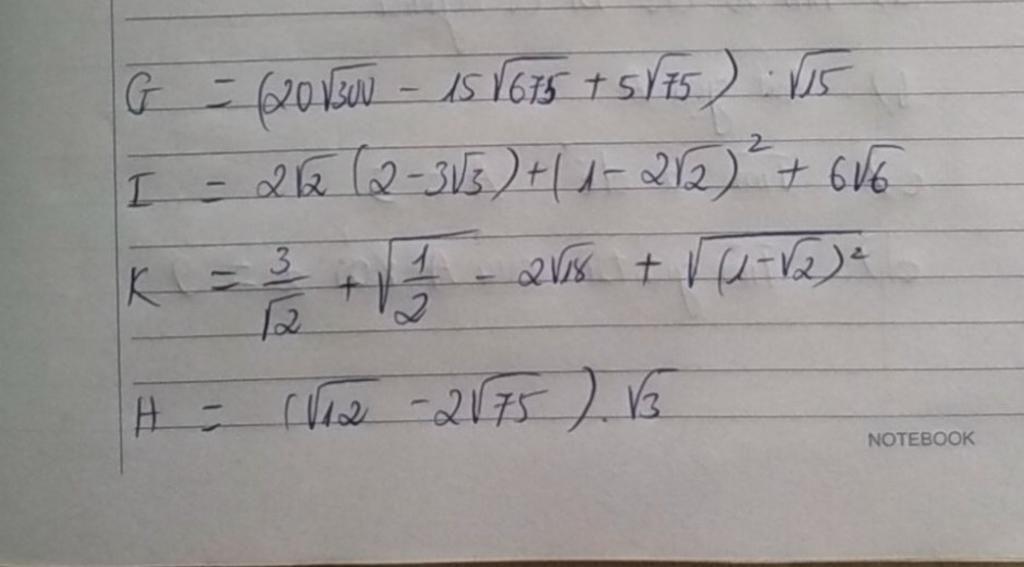 G = (20√300 - 15√675 + 5√75) : √15
I = 2√2 (2 - 3√3) + (1 - 2√2)² + 6√6
K = 3/√2 + √(1/2) - 2√18 + √((1-√2)²)
H = (√12 - 2√75) . √3
NOTEBOOK